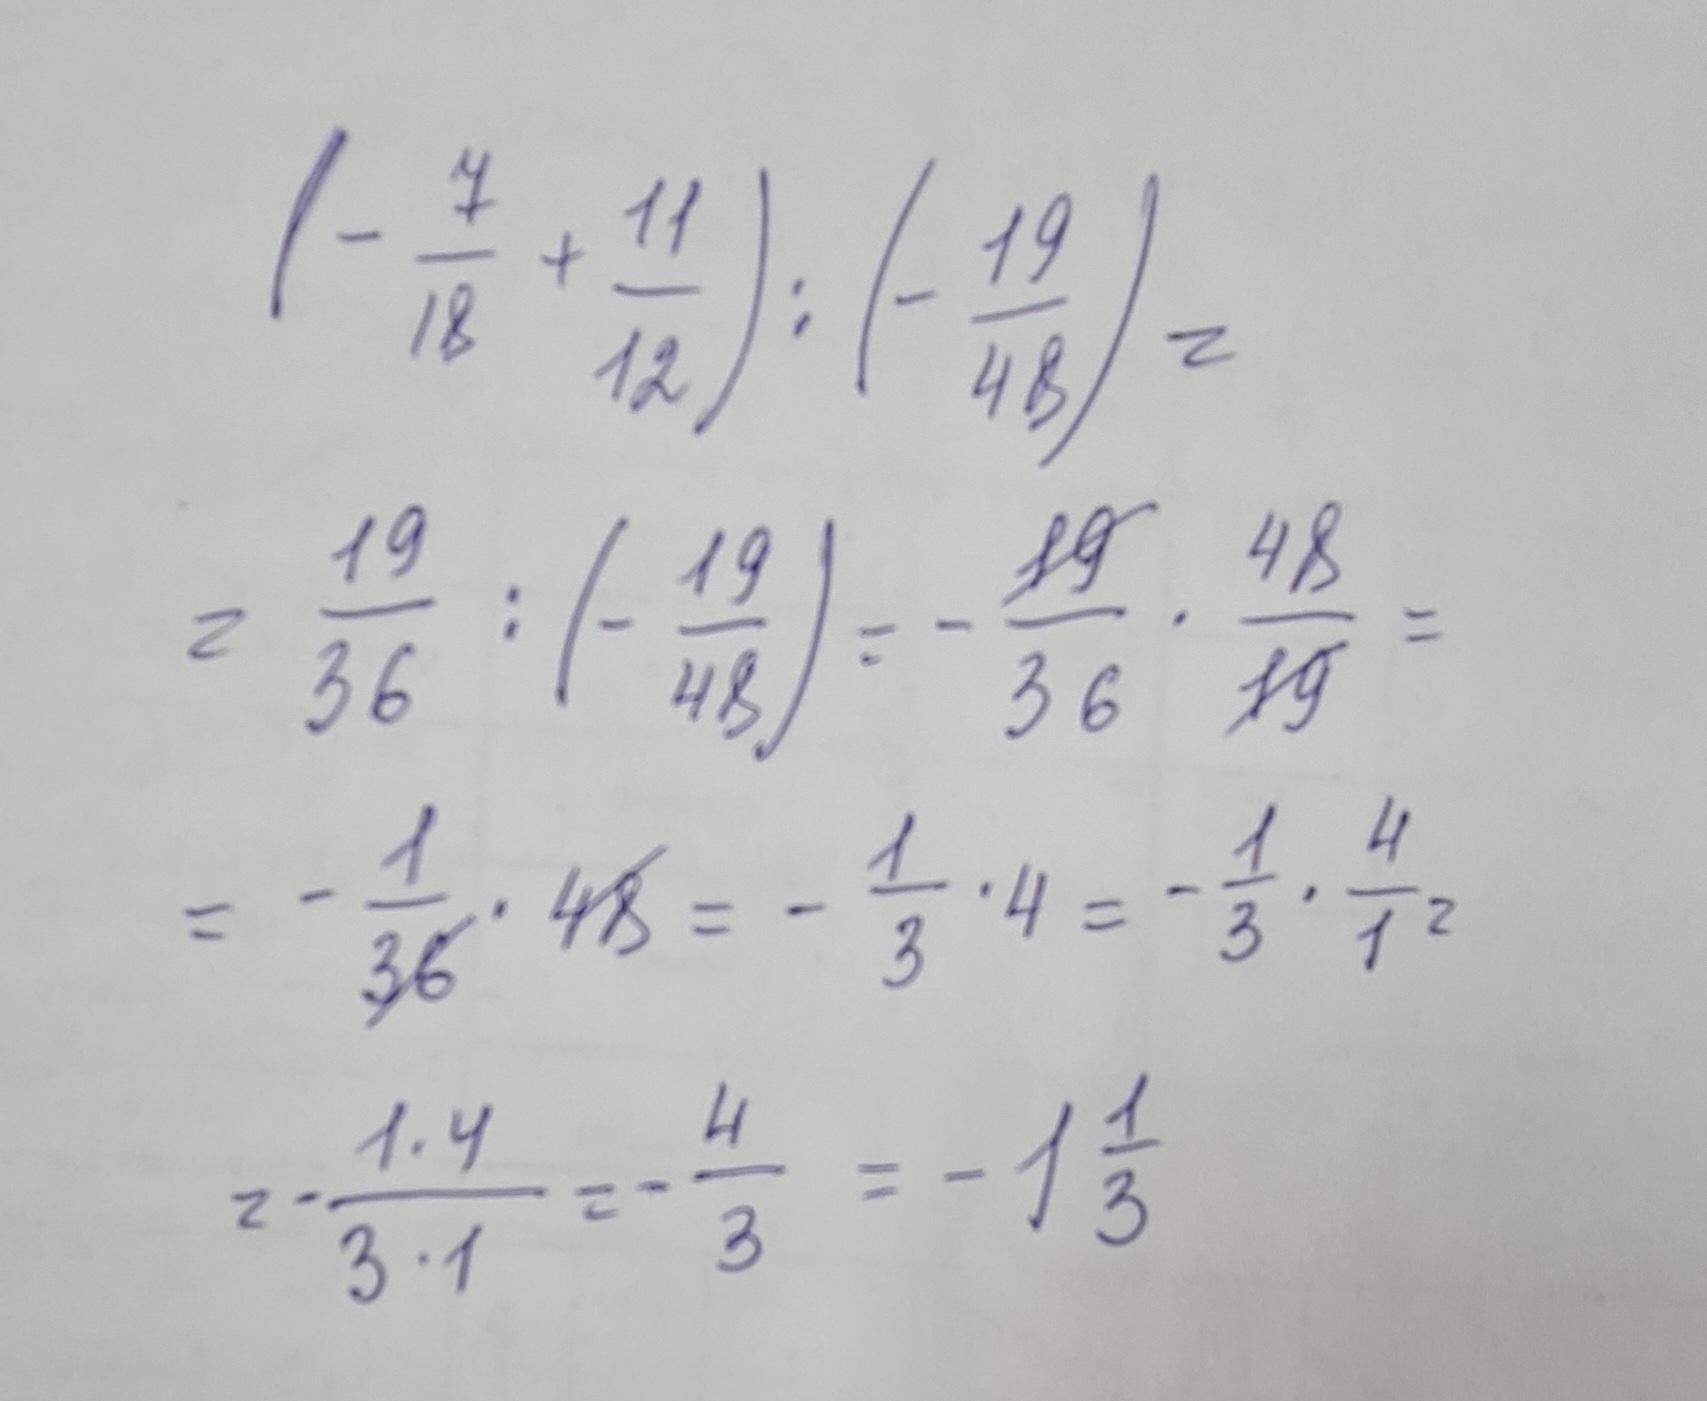 (- 7/18 + 11/12) : (- 19/48) =
= 19/36 : (- 19/48) = - 19/36 · 48/19 =
= - 1/36 · 48 = - 1/3 · 4 = - 1/3 · 4/1 =
= - 1·4/3·1 = - 4/3 = - 1 1/3